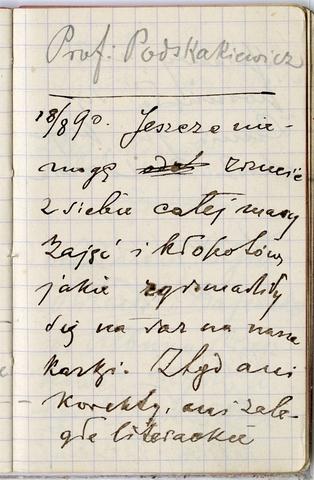 Prof: Podskakiewicz
18/8 90. Jeszcze nie-
mogę zrzucić
z siebie całej masy
zajęć i kłopotów,
jakie zgromadziły
się na raz na nasze
karki. Ztąd ani
korekty, ani zale-
głe literackie